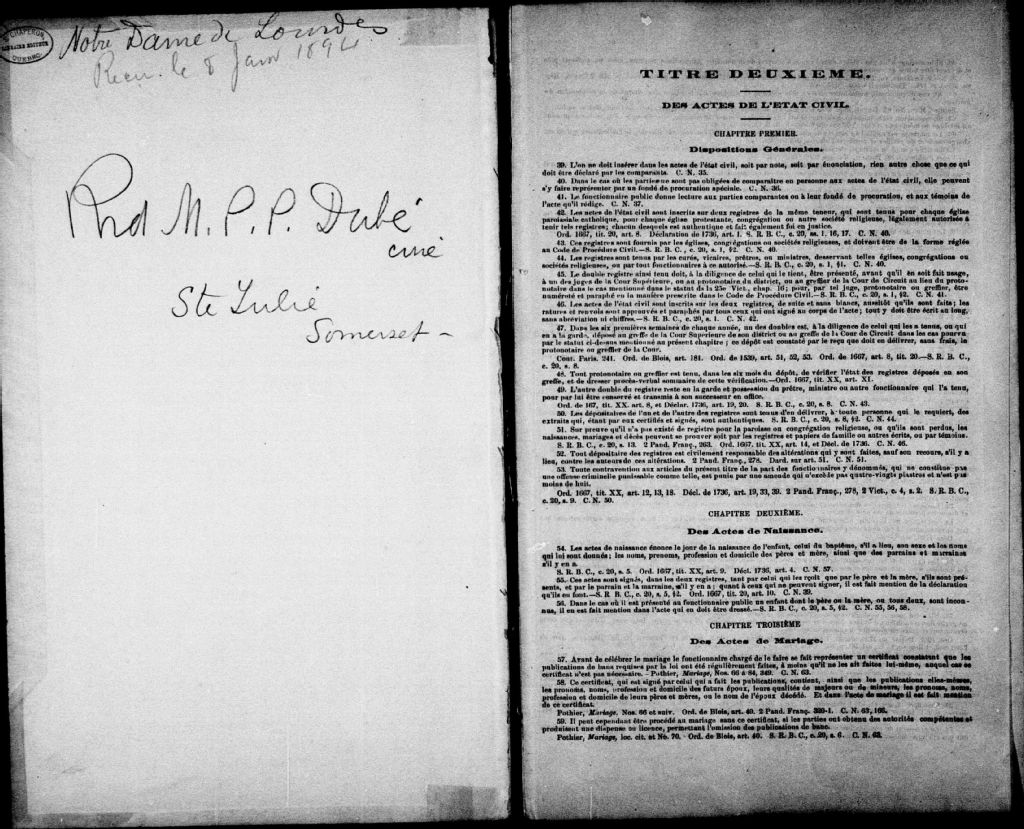 CHAPERON,
LIBRAIRE EDITEUR
QUEBEC
Notre Dame de Lourdes
Reçu le 8 Janv 1894
Rnd M. P. P. Dubé
curé
Ste Julie
Somerset –
TITRE DEUXIEME.
DES ACTES DE L'ETAT CIVIL.
CHAPITRE PREMIER.
Dispositions Générales.
39. L'on ne doit insérer dans les actes de l'état civil, soit par note, soit par énonciation, rien autre chose que ce qui
doit être déclaré par les comparants. C. N. 35.
40. Dans le cas où les parties ne sont pas obligées de comparaître en personne aux actes de l'état civil, elle peuvent
s'y faire représenter par un fondé de procuration spéciale. C. N. 36.
41. Le fonctionnaire public donne lecture aux parties comparantes ou à leur fondé de procuration, et aux témoins de
l'acte qu'il rédige. C. N. 37.
42. Les actes de l'état civil sont inscrits sur deux registres de la même teneur, qui sont tenus pour chaque église
paroissiale catholique, pour chaque église protestante, congrégation ou autre société religieuse, légalement autorisée à
tenir tels registres; chacun desquels est authentique et fait également foi en justice.
Ord. 1667, tit. 20, art. 8. Déclaration de 1736, art. 1. S. R. B. C., c. 20, ss. 1, 16, 17. C. N. 40.
43. Ces registres sont fournis par les églises, congrégations ou sociétés religieuses, et doivent être de la forme réglée
au Code de Procédure Civil.—S. R. B. C., c. 20, s. 1, §2. C. N. 40.
44. Les registres sont tenus par les curés, vicaires, prêtres, ou ministres, desservant telles églises, congrégations ou
sociétés religieuses, ou par tout fonctionnaires à ce autorisé.—S. R. B. C., c. 20, s. 1, §1. C. N. 40.
45. Le double registre ainsi tenu doit, à la diligence de celui qui le tient, être présenté, avant qu'il en soit fait usage,
à un des juges de la Cour Supérieure, ou au protonotaire du district, ou au greffier de la Cour de Circuit au lieu du proto-
notaire dans le cas mentionné dans le statut de la 25e Vict., chap. 16; pour, par tel juge, protonotaire ou greffier, être
numéroté et paraphé en la manière prescrite dans le Code de Procédure Civil.—S. R. B. C., c. 20, s. 1, §2. C. N. 41.
46. Les actes de l'état civil sont inscrits sur les deux registres, de suite et sans blancs, aussitôt qu'ils sont faits; les
ratures et renvois sont approuvés et paraphés par tous ceux qui ont signé au corps de l'acte; tout y doit être écrit au long,
sans abréviation ni chiffres.—S. R. B. C., c. 20, s. 1. C. N. 42.
47. Dans les six premières semaines de chaque année, un des doubles est, à la diligence de celui qui les a tenus, ou qui
en a la garde, déposé au greffe de la Cour Supérieure de son district ou au greffe de la Cour de Circuit dans les cas pourvu
par le statut ci-dessus mentionné au présent chapitre; ce dépôt est constaté par le reçu que doit en délivrer, sans frais, le
protonotaire ou greffier de la Cour.
Cout. Paris. 241. Ord. de Blois, art. 181. Ord. de 1539, art. 51, 52, 53. Ord. de 1667, art. 8, tit. 20.—S. R. B. C.,
c. 20, s. 8.
48. Tout protonotaire ou greffier est tenu, dans les six mois du dépôt, de vérifier l'état des registres déposés en son
greffe, et de dresser procès-verbal sommaire de cette vérification.—Ord. 1667, tit. XX, art. XI.
49. L'autre double du registre reste en la garde et possession du prêtre, ministre ou autre fonctionnaire qui l'a tenu,
pour par lui être conservé et transmis à son successeur en office.
Ord. de 167, tit. XX. art. 8, et Déclar. 1736, art. 19, 20. S. R. B. C., c. 20, s. 8. C. N. 43.
50. Les dépositaires de l'un et de l'autre des registres sont tenus d'en délivrer, à toute personne qui le requiert, des
extraits qui, étant par eux certifiés et signés, sont authentiques. S. R. B. C., c. 20, s. 8, §2. C. N. 44.
51. Sur preuve qu'il n'a pas existé de registre pour la paroisse ou congrégation religieuse, ou qu'ils sont perdus, les
naissances, mariages et décès peuvent se prouver soit par les registres et papiers de famille ou autres écrits, ou par témoins.
S. R. B. C., c. 20, s. 13. 2 Pand. Franç., 263. Ord. 1667, tit. XX, art. 14, et Décl. de 1736. C. N. 46.
52. Tout dépositaire des registres est civilement responsable des altérations qui y sont faites, sauf son recours, s'il y a
lieu, contre les auteurs de ces altérations. 2 Pand. Franç., 278. Dard. sur art. 51. C. N. 51.
53. Toute contravention aux articles du présent titre de la part des fonctionnaires y dénommés, qui ne constitue pas
une offense criminelle punissable comme telle, est punie par une amende qui n'excède pas quatre-vingts piastres et n'est pas
moins de huit.
Ord. 1667, tit. XX, art. 12, 13, 18. Décl. de 1736, art. 19, 33, 39. 2 Pand. Franç., 278, 2 Vict., c. 4, s. 2. S. R. B. C.,
c. 20, s. 9. C. N. 50.
CHAPITRE DEUXIÈME.
Des Actes de Naissance.
54. Les actes de naissance énonce le jour de la naissance de l'enfant, celui du baptême, s'il a lieu, son sexe et les noms
qui lui sont donnés; les noms, prenoms, profession et domicile des pères et mère, ainsi que des parrains et marraines
s'il y en a.
S. R. B. C., c. 20, s. 5. Ord. 1667, tit. XX, art. 9. Décl. 1736, art. 4. C. N. 57.
55. Ces actes sont signés, dans les deux registres, tant par celui qui les reçoit que par le père et la mère, s'ils sont pré-
sents, et par le parrain et la marraine, s'il y en a; quant à ceux qui ne peuvent signer, il est fait mention de la déclaration
qu'ils en font.—S. R. B. C., c. 20, s. 5, §2. Ord. 1667, tit. 20, art. 10. C. N. 39.
56. Dans le cas où il est présenté au fonctionnaire public un enfant dont le père ou la mère, ou tous deux, sont incon-
nus, il en est fait mention dans l'acte qui en doit être dressé.—S. R. B. C., c. 20, s. 5, §2. C. N. 55, 56, 58.
CHAPITRE TROISIÈME
Des Actes de Mariage.
57. Avant de célébrer le mariage le fonctionnaire chargé de le faire se fait représenter un certificat constatant que les
publications de bans requises par la loi ont été régulièrement faites, à moins qu'il ne les ait faites lui-même, auquel cas ce
certificat n'est pas nécessaire. - Pothier, Mariage, Nos. 66 à 84, 349. C. N. 63.
58. Ce certificat, qui est signé par celui qui a fait les publications, contient, ainsi que les publications elles-mêmes,
les pronoms, noms, profession et domicile des futurs époux, leurs qualités de majeurs ou de mineurs, les pronoms, noms,
profession et domicile de leurs pères et mères, ou le nom de l'époux décédé. Et dans l'acte de mariage il est fait mention
de ce certificat.
Pothier, Mariage, Nos. 66 et suiv. Ord. de Blois, art. 40. 2 Pand. Franç. 320-1. C. N. 63, 166.
59. Il peut cependant être procédé au mariage sans ce certificat, si les parties ont obtenu des autorités compétentes et
produisent une dispense ou licence, permettant l'omission des publications de bans.
Pothier, Mariage, loc. cit. et No. 70. - Ord. de Blois, art. 40. S. R. B. C., c. 20, s. 6. C. N. 63.